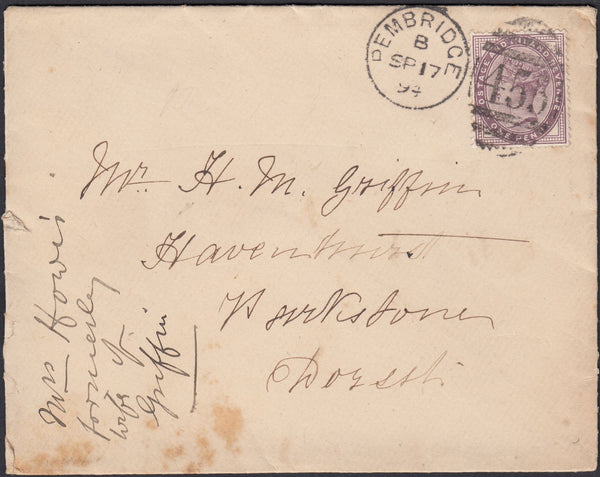 PEMBRIDGE
B
SP 17
94
POSTAGE AND INLAND REVENUE
ONE PENNY
Mr. H. M. Griffin
Havenhurst
Parkstone
Dorset
Mrs Howis
formerley
wife of
Griffin